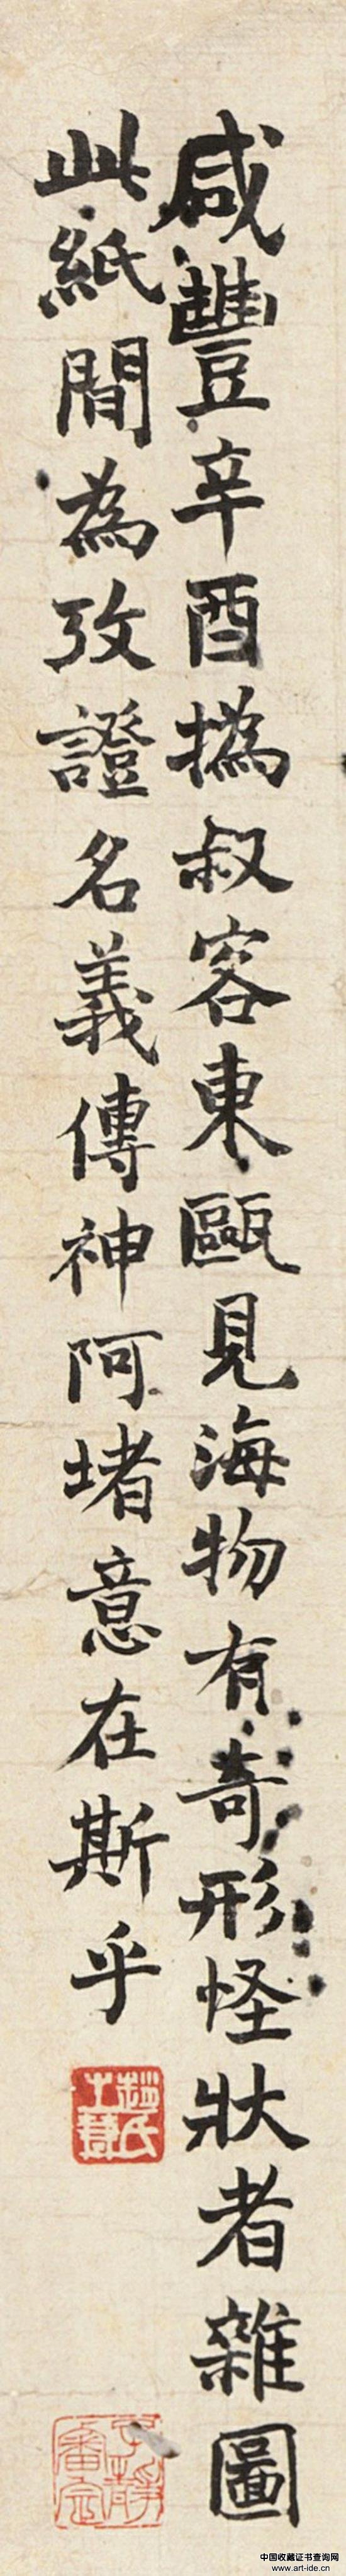 咸豐辛酉撝叔客東甌見海物有奇形怪狀者雜圖
此紙間為攷證名義傳神阿堵意在斯乎
中国收藏证书查询网
www.art-ide.cn